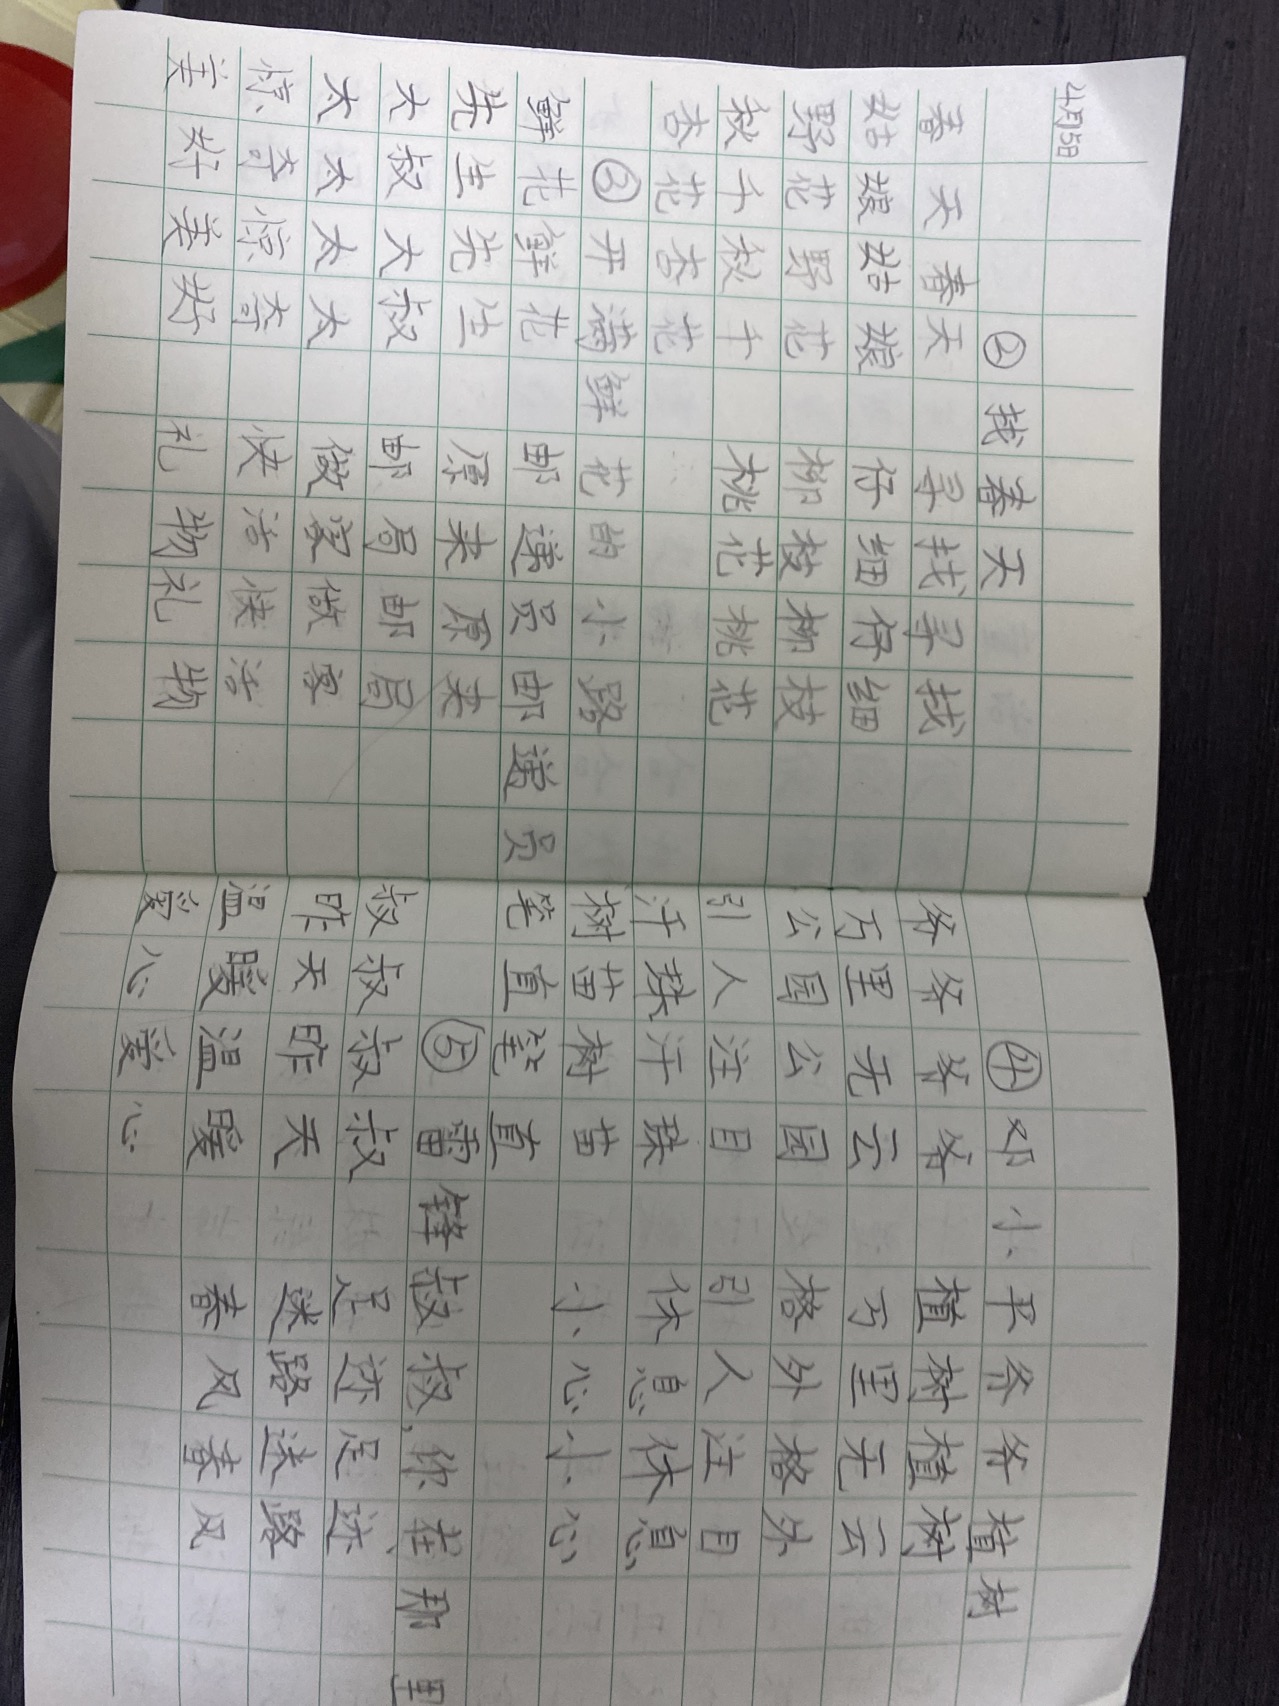 4月5日
②找春天
春天春天 寻找寻找
姑娘姑娘 仔细仔细
野花野花 柳枝柳枝
秋千秋千 桃花桃花
杏花杏花
③开满鲜花的小路
鲜花鲜花 邮递员邮递员
先生先生 原来原来
大叔大叔 邮局邮局
太太太太 做客做客
惊奇惊奇 快活快活
美好美好 礼物礼物
④邓小平爷爷植树
爷爷爷爷 植树植树
万里无云 万里无云
公园公园 格外格外
引人注目 引人注目
汗珠汗珠 休息休息
树苗树苗 小心小心
笔直笔直
⑤雷锋叔叔,你在那里
叔叔叔叔 足迹足迹
昨天昨天 迷路迷路
温暖温暖 春风春风
爱心爱心